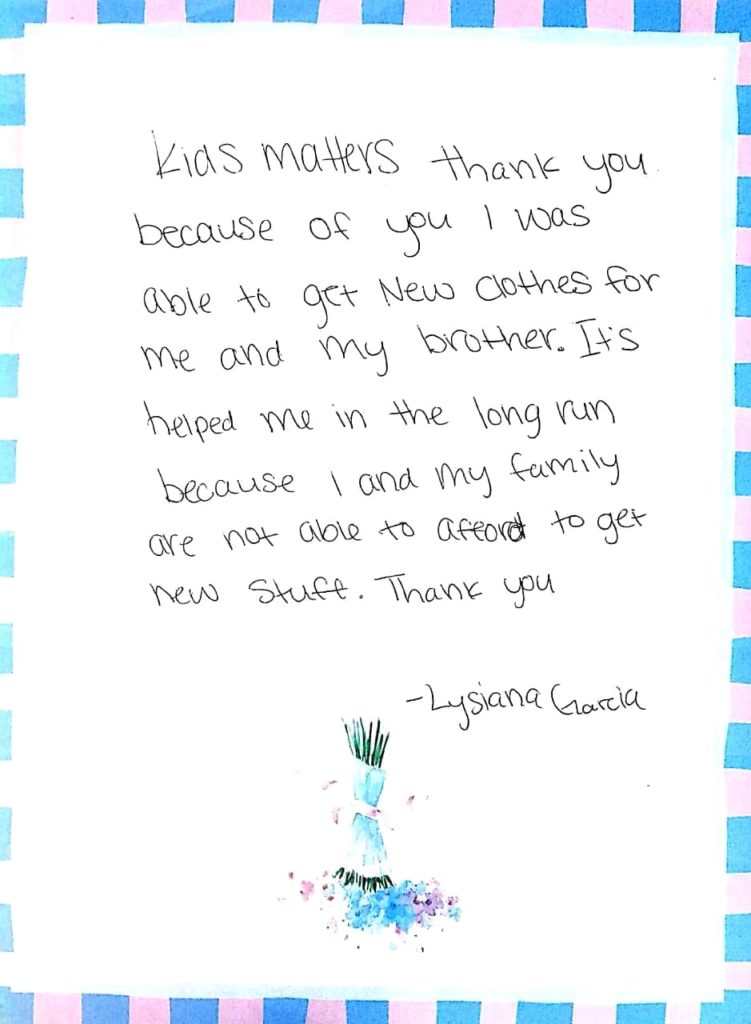 Kids matters thank you
because of you I was
able to get New clothes for
me and my brother. It's
helped me in the long run
because I and my family
are not able to afford to get
new stuff. Thank you
-Lysiana Garcia